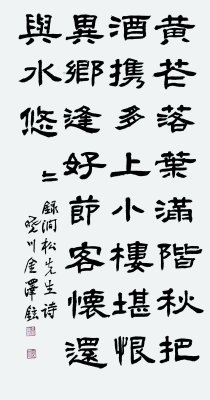 黃花落葉滿階秋把
酒携多上小樓堪恨
異鄉逢好節客懷還
與水悠〻
錄澗松先生詩
曉川金澤鉉